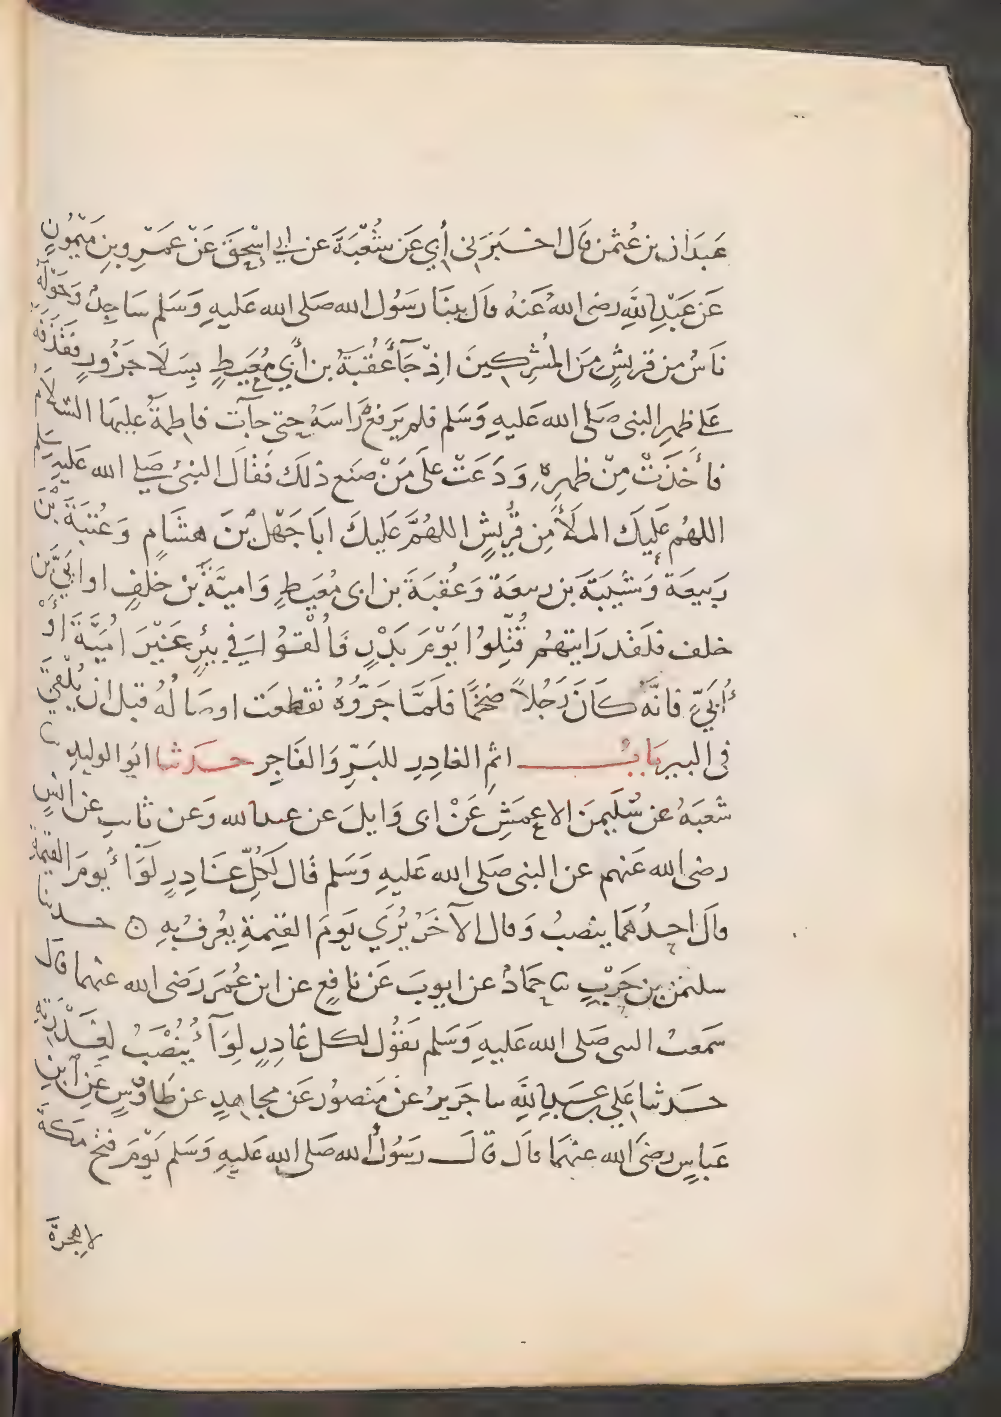 عَبدَان بن عُثمٰن قال اخبَرَني أبي عَن شُعْبَةَ عن ابي اسْحٰقَ عَنْ عَمْرِو بنِ مَيْمُونٍ
عَن عَبْدِ اللهِ رضى اللهُ عَنهُ قال بينَا رَسُول الله صَلى الله عَليهِ وَسَلم سَاجِدٌ وَحَوْلَهُ
نَاسٌ من قريشٍ مِنَ المُشركينَ اذْ جَآ عُقبَةُ بن أبي مُعَيطٍ بِسَلَا جَزُورٍ فقَذفَهُ
عَلى ظهرِ النبى صَلى الله عَليهِ وَسَلم فلم يَرفعْ رَاسَهُ حتى جآت فاطمةُ عليهَا السَّلَامُ
فأخذَتْ مِنْ ظهرِهِ وَدَعَتْ علَى مَنْ صَنع ذلكَ فقالَ النبىُ صلى الله عَليهِ وسَلم
اللهُم عَليكَ الملَأَ مِن قُرَيشٍ اللهُمَّ عَليكَ ابَا جَهْلِ بْنَ هشامٍ وَعُتبَةَ بْنَ
رَبيعَةَ وَشَيبَةَ بن ربيعَةَ وَعُقبَةَ بن ابى مُعَيطٍ وَاميَّةَ بْنَ خَلَفٍ او ابَيَّ بْن
خلف فلَقد رَايتهُم قُتِلُوا يَوْمَ بَدْرٍ فَأُلْقُوا في بِئْرٍ غَيْرَ اُمَيَّةَ أوْ
أُبَيٍّ فانَّهُ كانَ رَجُلاً ضخمًا فلَمَّا جَرُّوهُ تقَطعَت اوصَالُهُ قبل ان يُلْقَى
فى البير بَابُ اثمِ الغادِرِ للبَرِّ وَالفَاجِرِ حَدثنا ابُو الوليدِ ثنا
شعبَةُ عن سُلَيمٰنَ الاعمَشِ عَنْ ابى وَايلَ عن عبدالله وَعن ثابتٍ عن انسٍ
رضى الله عَنهم عن النبى صَلى الله عَليهِ وَسَلم قال لكُلِّ غَادِرٍ لوَآءٌ يومَ القيٰمةِ
قالَ احدُهمَا ينصبُ وَقال الآخَرُ يُرَي يَومَ القيٰمةِ يعُرفُ بِهِ ه حدثنا
سليمٰن بن حَرْبٍ ثنا حمَادٌ عن ايوبَ عَن نافعٍ عن ابن عُمَرَ رَضى الله عنهما قال
سَمعتُ النبى صَلى الله عَليهِ وَسَلم يَقوُل لكل غادِرٍ لِوَآءٌ يُنْصَبُ لِغَدْرَتِهِ
حَدثنا عَلي بن عَبدِ اللهِ ثنا جَريرُ عن مَنصُور عَن مجاهدٍ عن طاوُسٍ عَن ابنِ
عَباسٍ رضىَ الله عنهُمَا قال قالَ رَسوُل الله صَلى الله عَليهِ وَسَلم يَوْمَ فتح مَكةَ
لا هجرَةَ